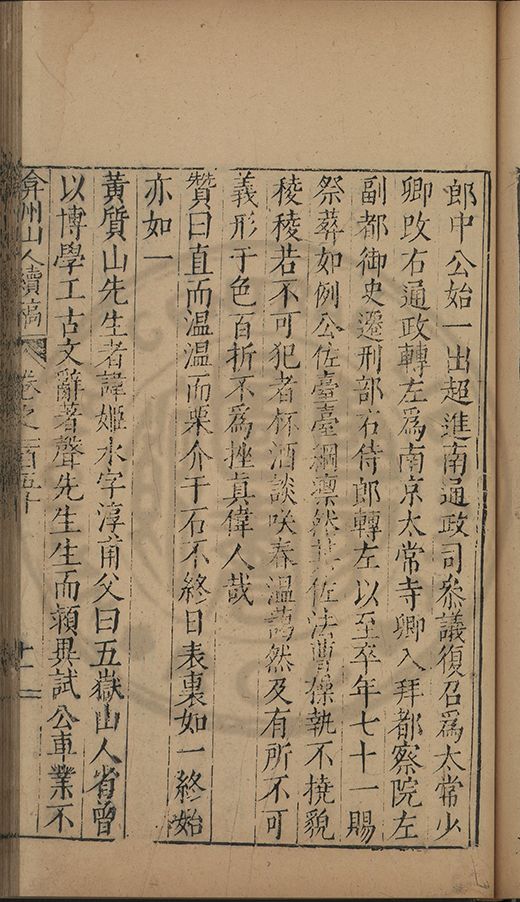 郎中公始一出超進南通政司叅議復召爲太常少
卿改右通政轉左爲南京太常寺卿入拜都察院左
副都御史遷刑部右侍郎轉左以至卒年七十一賜
祭葬如例公佐臺臺綱凛然其佐法曹操執不撓貌
稜稜若不可犯者杯酒談咲春溫藹然及有所不可
義形于色百折不爲挫真偉人哉
贊曰直而溫溫而栗介于石不終日表裏如一終始
亦如一
黃質山先生者諱姬水字淳甫父曰五嶽山人省曾
以博學工古文辭著聲先生生而穎異試公車業不
弇州山人續稿 卷之一百五十 十一